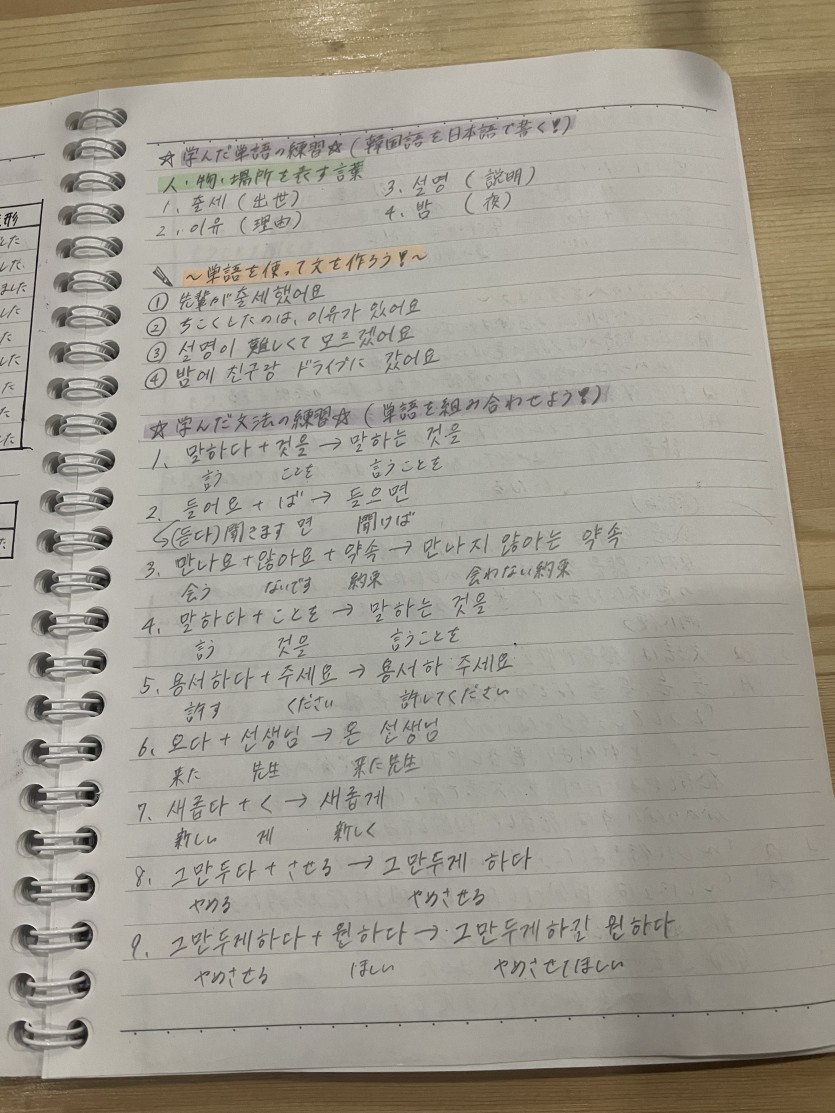 ☆学んだ単語の練習☆(韓国語を日本語で書く!)
人・物・場所を表す言葉
1. 출세(出世) 3. 설명(説明)
2. 이유(理由) 4. 밤(夜)
～単語を使って文を作ろう!～
① 先輩が출세했어요
② ちこくしたのは、이유가 있어요
③ 설명이 難しくて 모르겠어요
④ 밤에 친구랑 ドライブに 갔어요
☆学んだ文法の練習☆(単語を組み合わせよう!)
1. 말하다+것을→말하는 것을
言う ことを 言うことを
2. 들어요+ば→들으면
↳(듣다)聞きます 면 聞けば
3. 만나요+않아요+약속→만나지 않아는 약속
会う ないです 約束 会わない約束
4. 말하다+ことを→말하는 것을
言う 것을 言うことを
5. 용서하다+주세요→용서하 주세요
許す ください 許してください
6. 오다+선생님→온 선생님
来た 先生 来た先生
7. 새롭다+く→새롭게
新しい 게 新しく
8. 그만두다+させる→그만두게 하다
やめる やめさせる
9. 그만두게하다+원하다→그만두게하길 원하다
やめさせる ほしい やめさせてほしい
形
した
した
ました
した
た
した
た
た
した
た